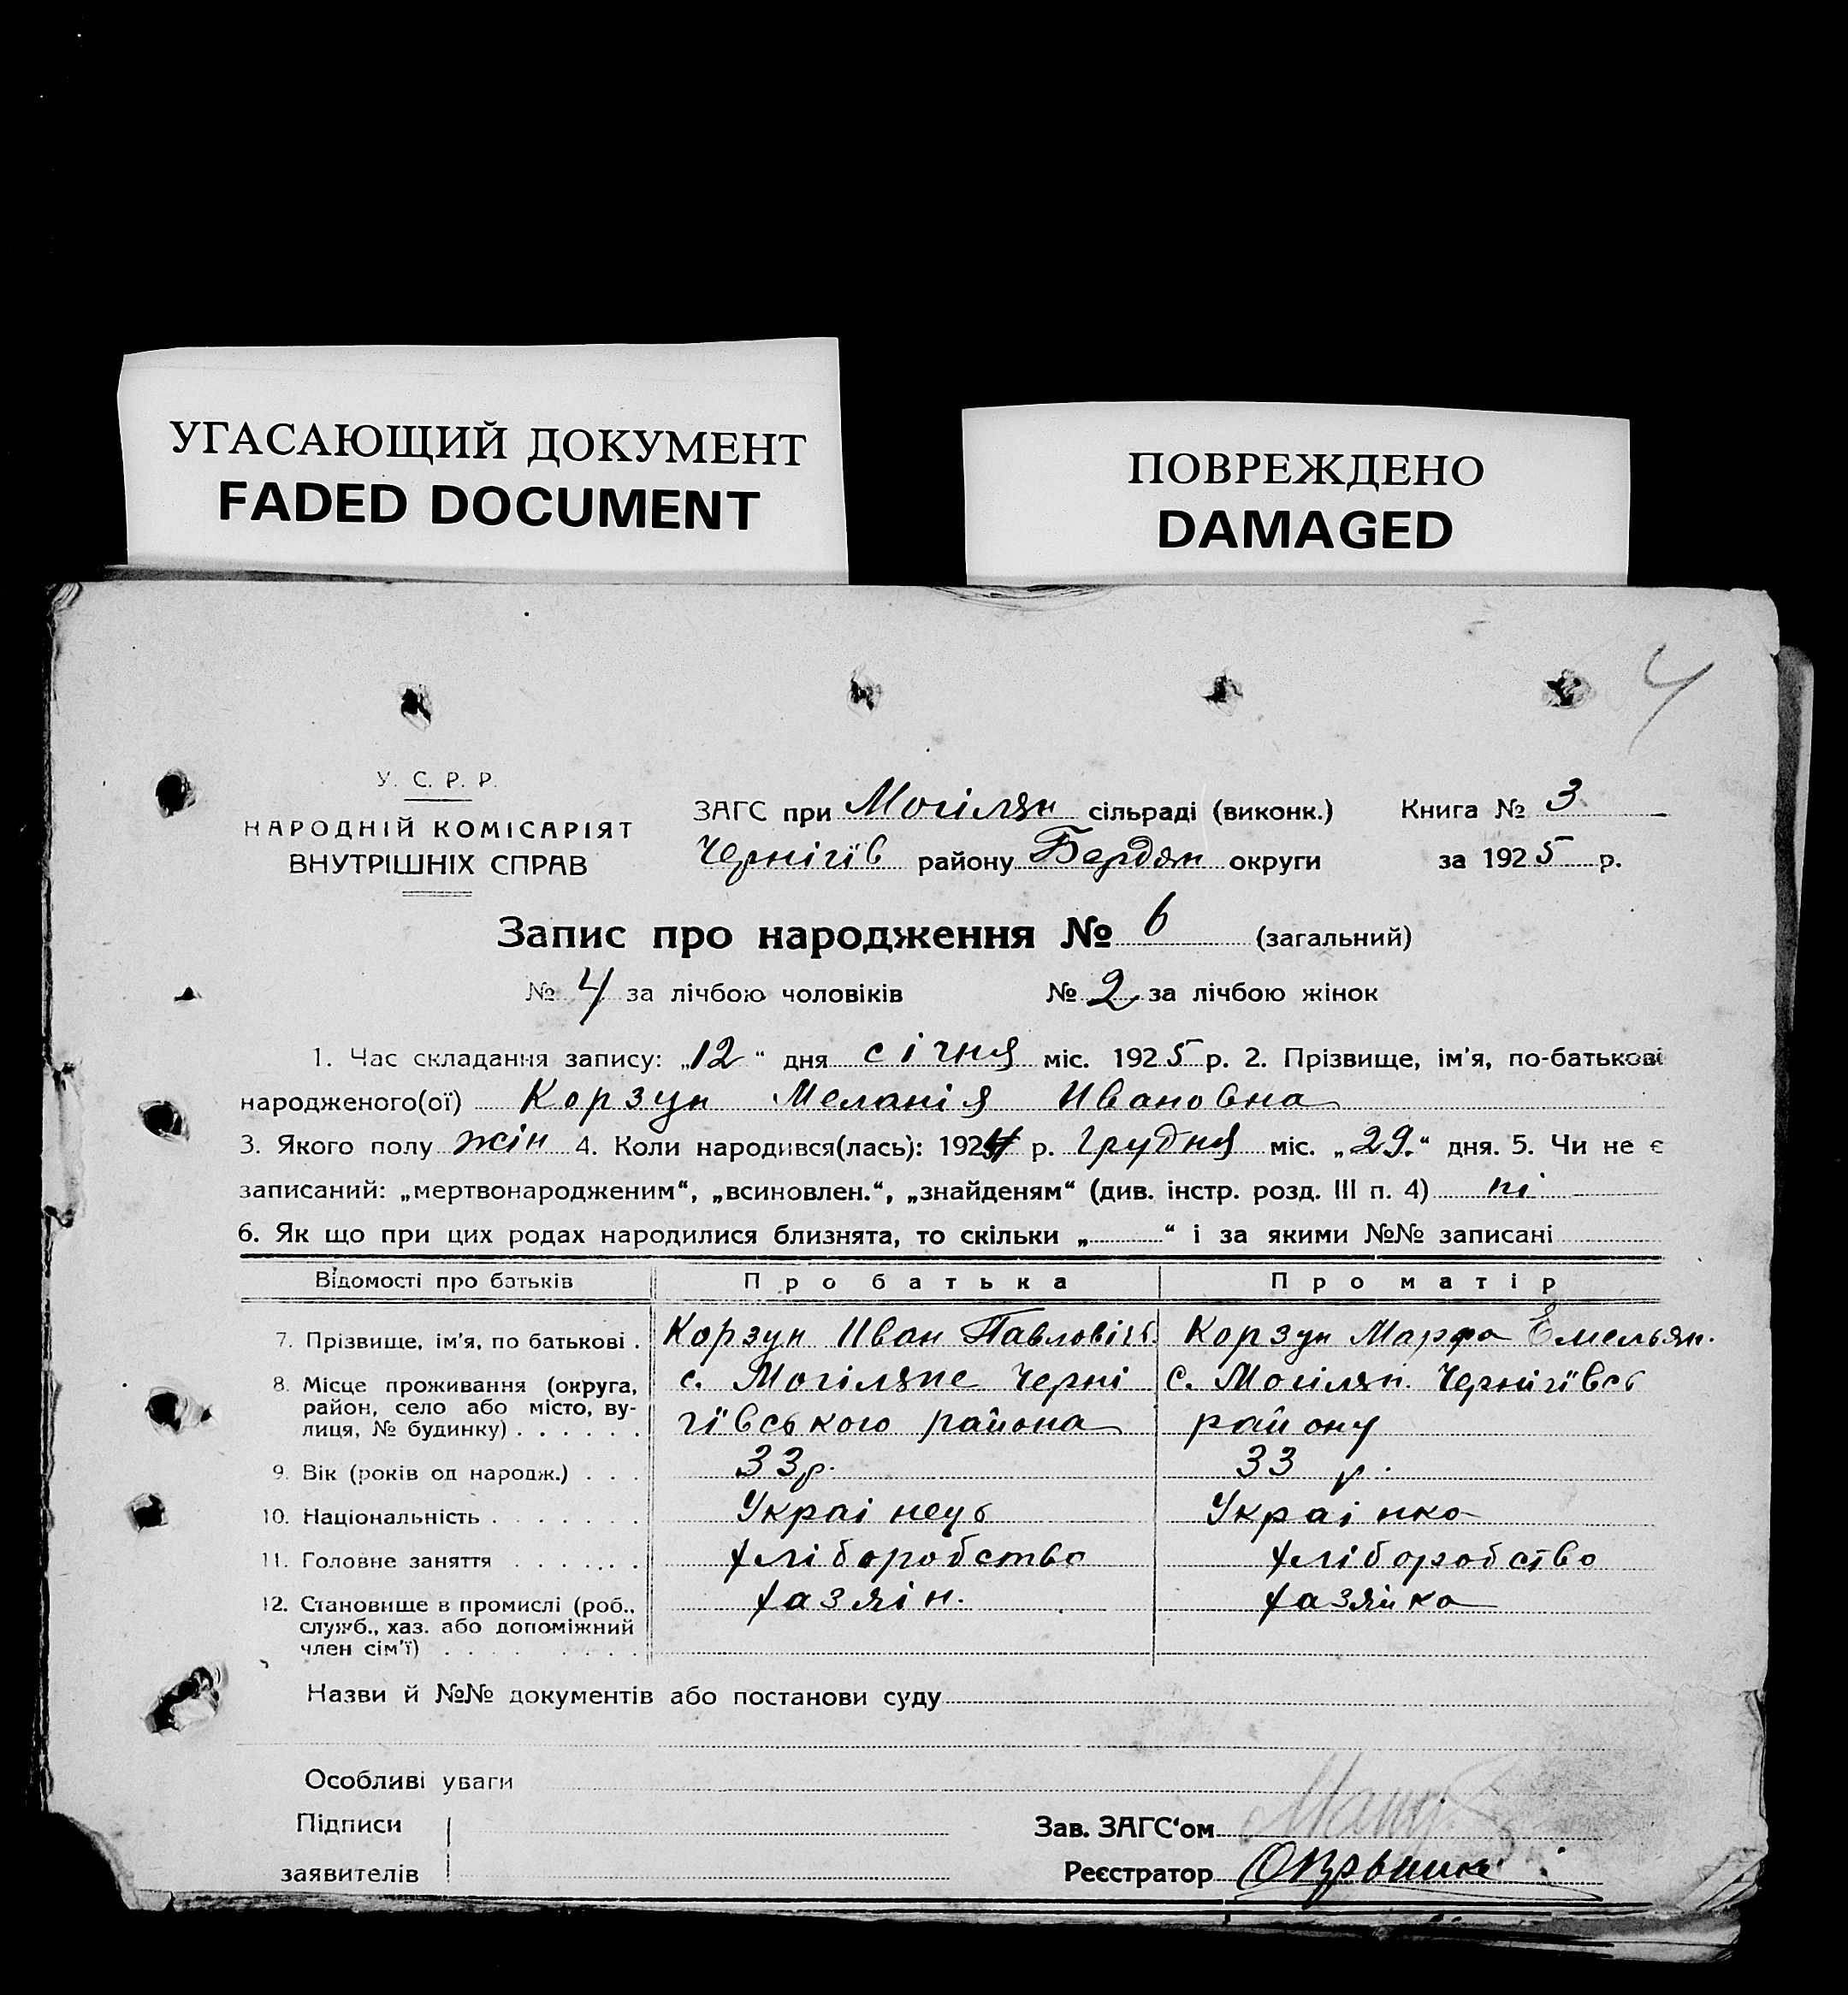 УГАСАЮЩИЙ ДОКУМЕНТ
FADED DOCUMENT
ПОВРЕЖДЕНО
DAMAGED
4
У. С. Р. Р.
НАРОДНІЙ КОМІСАРІЯТ
ВНУТРІШНІХ СПРАВ
ЗАГС при Могілян сільраді (виконк.) Книга № 3
Чернігів району Бердян округи за 1925 р.
Запис про народження № 6 (загальний)
№ 4 за лічбою чоловіків № 2 за лічбою жінок
1. Час складання запису: „12“ дня січня міс. 1925 р. 2. Прізвище, ім'я, по-батькові
народженого(ої) Корзун Меланія Ивановна
3. Якого полу жін 4. Коли народився(лась): 1924 р. грудня міс. „29.“ дня. 5. Чи не є
записаний: „мертвонародженим“, „всиновлен.“, „знайденям“ (див. інстр. розд. III п. 4) ні
6. Як що при цих родах народилися близнята, то скільки „ “ і за якими №№ записані
Відомості про батьків Про батька Про матір
7. Прізвище, ім'я, по батькові . Корзун Иван Павловічь Корзун Марфа Емельян.
8. Місце проживання (округа, с. Могіляне Черні с. Могілян. Чернігівсь
район, село або місто, ву-
лиця, № будинку) . . . . . . гівського района району
9. Вік (років од народж.) . . . 33 р. 33 р.
10. Національність . . . . . . . Украінець Украінка
11. Головне заняття . . . . . . хліборобство хліборобство
12. Становище в промислі (роб., хазяін. хазяйка
служб., хаз. або допоміжний
член сім'ї) . . . . . . . .
Назви й №№ документів або постанови суду
Особливі уваги
Підписи
заявителів
Зав. ЗАГС'ом
Реєстратор